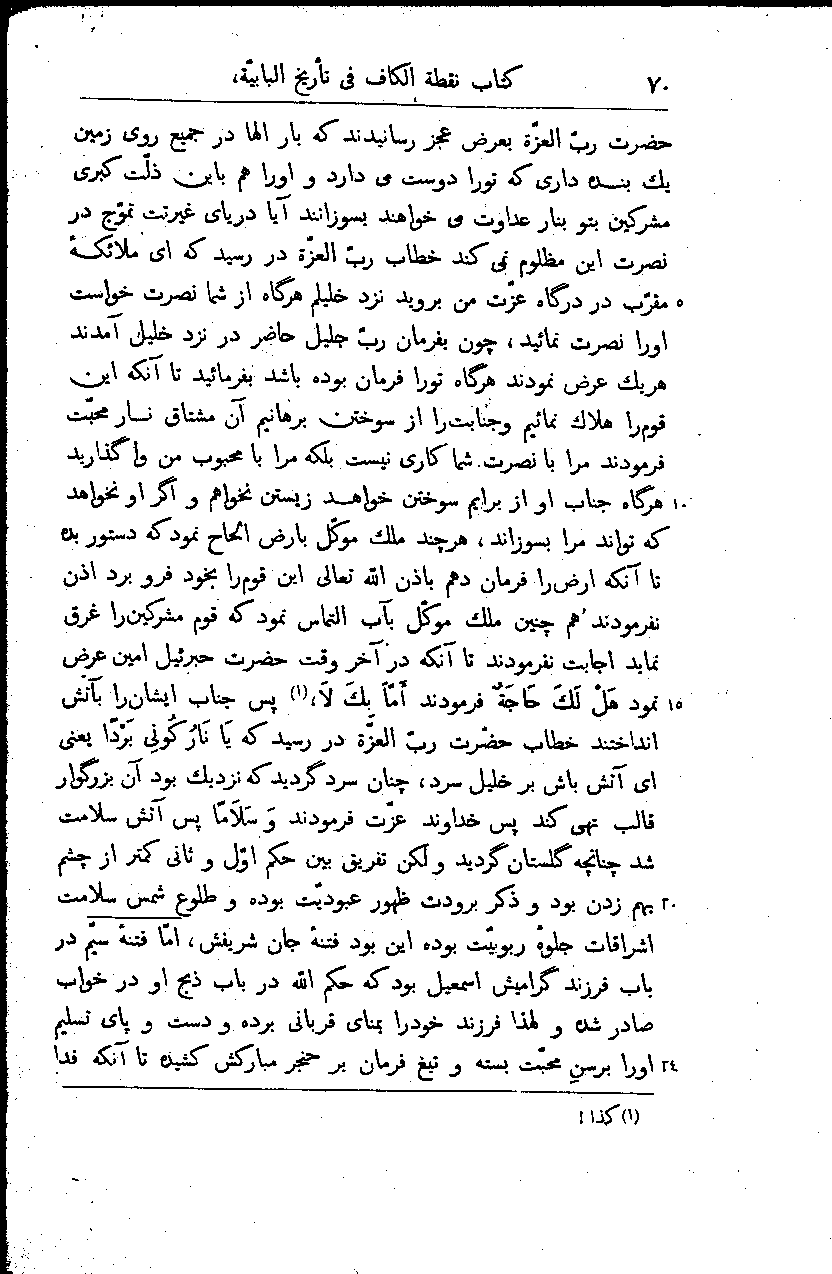 ۷۰ کتاب نقطة الکاف فی تأریخ البابیّة،
حضرت ربّ العزّة بعرض عجز رسانیدند که بار الها در جمیع روی زمین
یك بنده داری که تورا دوست می دارد و اورا هم باین ذلّت کبری
مشرکین بتو بنار عداوت می خواهند بسوزانند آیا دریای غیرتت تموّج در
نصرت این مظلوم نمی کند خطاب ربّ العزّة در رسید که ای ملائکهٔ
۵ مقرّب در درگاه عزّت من بروید نزد خلیلم هرگاه از شما نصرت خواست
اورا نصرت نمائید، چون بفرمان ربّ جلیل حاضر در نزد خلیل آمدند
هریك عرض نمودند هرگاه تورا فرمان بوده باشد بفرمائید تا آنکه این
قوم‌را هلاك نمائیم وجنابت‌را از سوختن برهانیم آن مشتاق نار محبّت
فرمودند مرا با نصرت شما کاری نیست بلکه مرا با محبوب من وا گذارید
۱۰ هرگاه جناب او از برایم سوختن خواهد زیستن نخواهم و اگر او نخواهد
که تواند مرا بسوزاند، هرچند ملك موکّل بارض الحاح نمود که دستور بده
تا آنکه ارض‌را فرمان دهم باذن الله تعالی این قوم‌را بخود فرو برد اذن
نفرمودند هم چنین ملك موکّل بآب التماس نمود که قوم مشرکین‌را غرق
نماید اجابت نفرمودند تا آنکه در آخر وقت حضرت جبرئیل امین عرض
۱۵ نمود هَلْ لَكَ حَاجَةٌ فرمودند أَمَّا بِكَ لَا،(۱) پس جناب ایشان‌را بآتش
انداختند خطاب حضرت ربّ العزّة در رسید که یَا نَارُ کُونِي بَرْدًا یعنی
ای آتش باش بر خلیل سرد، چنان سرد گردید که نزدیك بود آن بزرگوار
قالب تهی کند پس خداوند عزّت فرمودند وَ سَلَامًا پس آتش سلامت
شد چنانچه گلستان گردید و لکن تفریق بین حکم اوّل و ثانی کمتر از چشم
۲۰ بهم زدن بود و ذکر برودت ظهور عبودیّت بوده و طلوع شمس سلامت
اشراقات جلوهٔ ربوبیّت بوده این بود فتنهٔ جان شریفش، امّا فتنهٔ سیّم در
باب فرزند گرامیش اسمعیل بود که حکم الله در باب ذبح او در خواب
صادر شده و لهذا فرزند خودرا بمنای قربانی برده و دست و پای تسلیم
۲٤ اورا برسنِ محبّت بسته و تیغ فرمان بر حنجر مبارکش کشیده تا آنکه فدا
(۱) کذا !